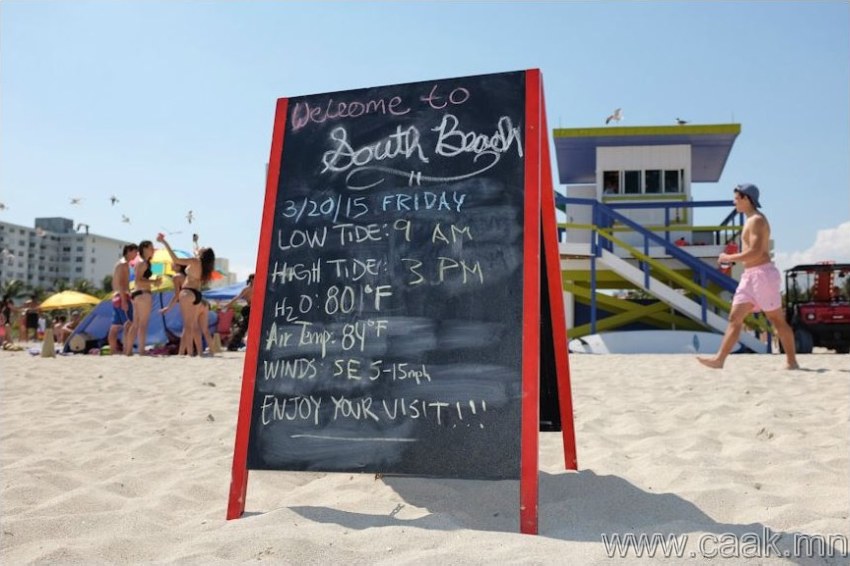 Welcome to
South Beach
3/20/15 FRIDAY
LOW TIDE: 9 AM
HIGH TIDE: 3 PM
H2O: 80°F
Air Temp: 84°F
WINDS: SE 5-15mph
ENJOY YOUR VISIT!!!
www.caak.mn